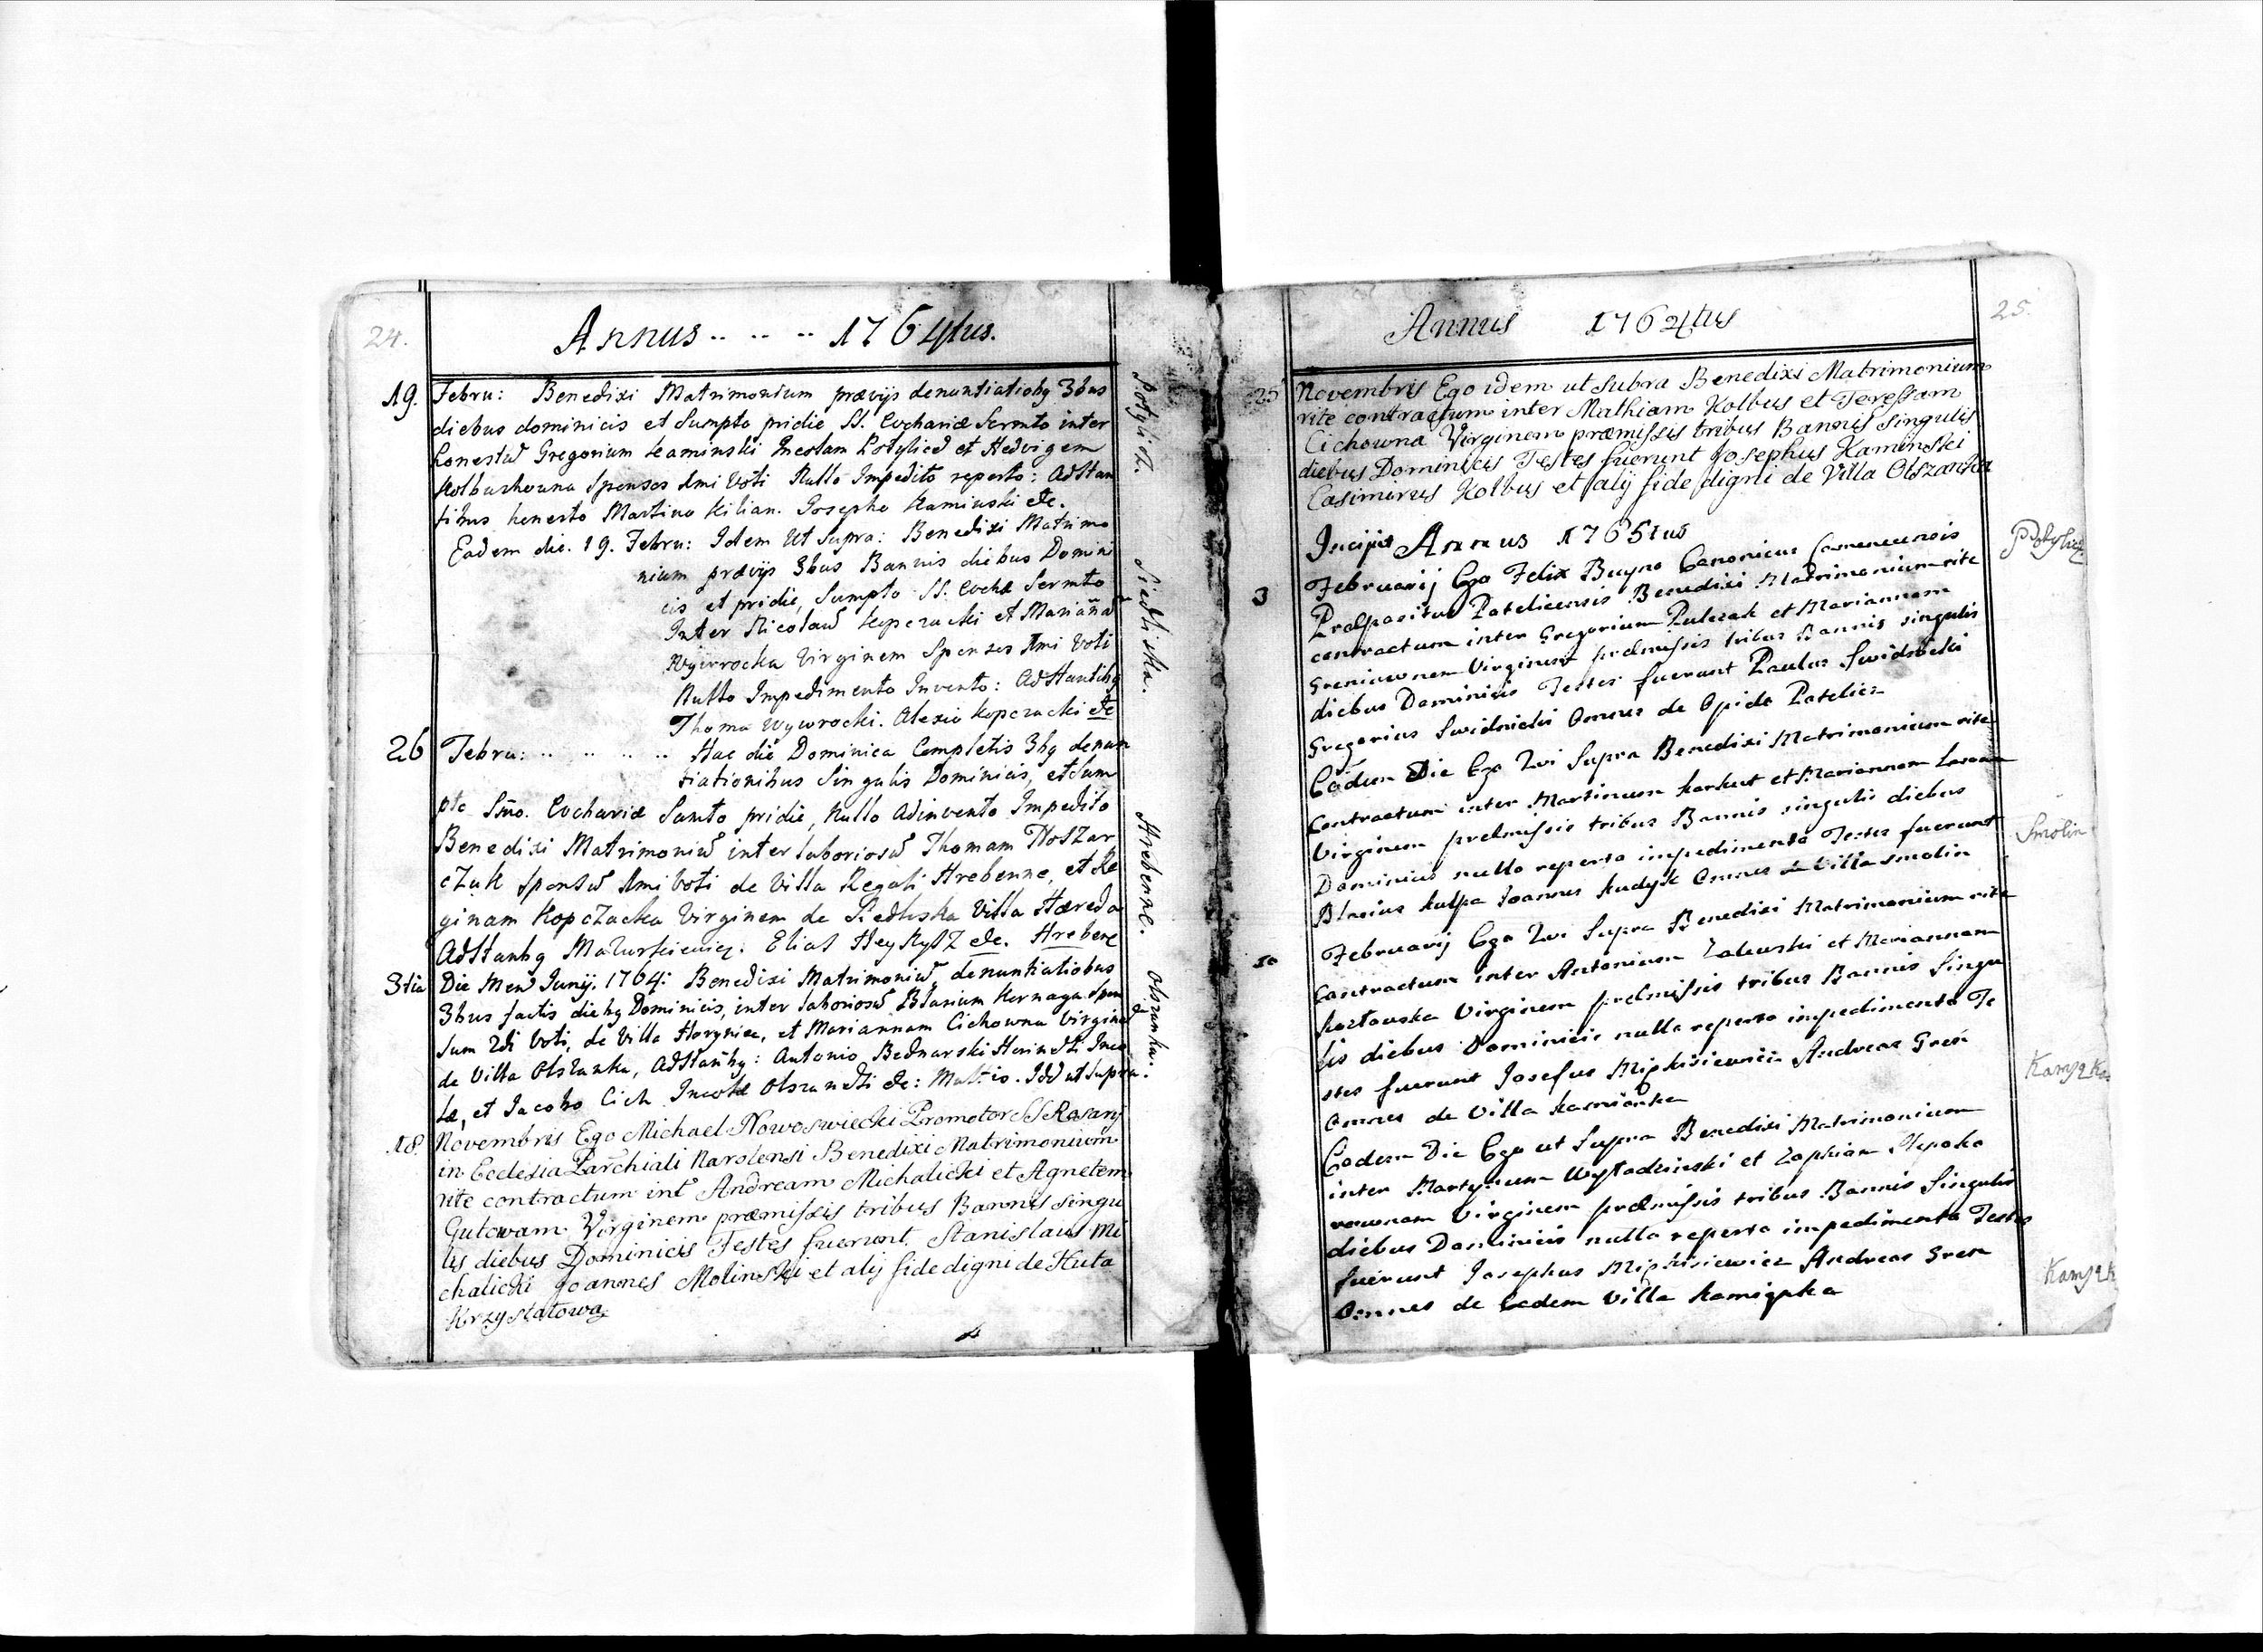 24.
Annus .. .. .. 1764tus.
19. Febru: Benedixi Matrimonium prævijs denuntiatiobq 3bus
diebus dominicis et Sumpto pridie, SS. Evchariæ Sermto inter
honestū Gregorium Kaminski Incolam Potylicē et Hedvigem
Kolbuskowna Sponsos Ami Voti Nullo Impedito reperto: Adstan
tibus honesto Martino Kilian. Josepho Kaminski etc.
Eadem die. 19. Febru: Idem Ut Supra: Benedixi Matrimo
nium prævijs 3bus Bannis diebus Domini
cis et pridie, Sumpto SS. Evchæ Sermto
Inter Nicolaū Kopczacki et Mariañā
Wywrocka Virginem Sponsos Ami Voti
Nullo Impedimento Invento: Adstantibq
Thoma Wywrocki. Alexio Kopczacki etc
26 Febru: .. .. .. .. Hac die Dominica Completis 3bq denun
tiationibus Singulis Dominicis, et Sum
pto Smo. Evchariæ Samto pridie, Nullo Adinvento Impedito
Benedixi Matrimoniū inter laboriosū Thomam Woszar
czuk Sponsū Ami Voti de Villa Regali Hrebenne, et Re
ginam Kopczacka Virginem de Siedliska Villa Hæreda
Adstanbq Mazurkiewicz. Elias Hey etc. Hrebene
3tia Die Mens Junij. 1764: Benedixi Matrimoniū, denuntiatiobus
3bus factis diebq Dominicis, inter laboriosū Blasium Kernaga Spon
sum 2di Voti, de Villa Horyniec, et Mariannam Cichowna Virginē
de Villa Olszanka, Adstañbq: Antonio Bednarski Inco
læ, et Jacobo Cich Incolæ etc: Multis. Idd ut Supra.
18. Novembris Ego Michael Nowoswiecki Promotor SS Rosarij
in Ecclesia Parchiali Narolensi Benedixi Matrimonium
rite contractum int Andream Michalicki et Agnetem
Gutowam Virginem præmissis tribus Bannis singu
lis diebus Dominicis Testes fuerunt Stanislaus Mi
chalicki Joannes Molinski et alij fide digni de Huta
Krzysztatowa
Potylicz.
Siedliska.
Hrebenne.
Olszanka.
25.
Annus 1764tus
25 Novembris Ego idem ut Subra Benedixi Matrimonium
rite contractum inter Mathiam Kolbus et Teressam
Cichowna Virginem præmissis tribus Bannis Singulis
diebus Dominicis Testes fuerunt Josephus Kaminski
Casimirus Kolbus et alij fide digni de Villa Olszanka
Incipit Annus 1765tus
3 Februarij Ego Felix Buyno Canonicus Camenecensis
Præpositus Potelicensis Benedixi Matrimonium rite
contractum inter Gregorium Pulczak et Mariannam
Virginem præmissis tribus Bannis singulis
diebus Dominicis Testes fuerunt Paulus Swidnicki
Gregorius Swidnicki Omnes de Opido Potelicz
Eodem Die Ego Qui Supra Benedixi Matrimonium rite
contractum inter Martinum Korkut et Mariannam
Virginem præmissis tribus Bannis singulis diebus
Dominicis nullo reperto impedimento Testes fuerunt
Blasius Kulpa Joannes Kudyk Omnes de Villa Smolin
10 Februarij Ego Qui Supra Benedixi Matrimonium rite
contractum inter Antonium Zaleuski et Mariannam
Kozłouska Virginem præmissis tribus Bannis Singu
lis diebus Dominicis nullo reperto impedimento Te
stes fuerunt Josefus Andreas Gren
Omnes de Villa Kamionka
Eodem Die Ego ut Supra Benedixi Matrimonium
inter Martynum et Zophiam
Virginem præmissis tribus Bannis Singulis
diebus Dominicis nullo reperto impedimento Testes
fuerunt Josephus Andreas Gren
Omnes de Eadem Villa Kamiąka
Potylicz
Smolin